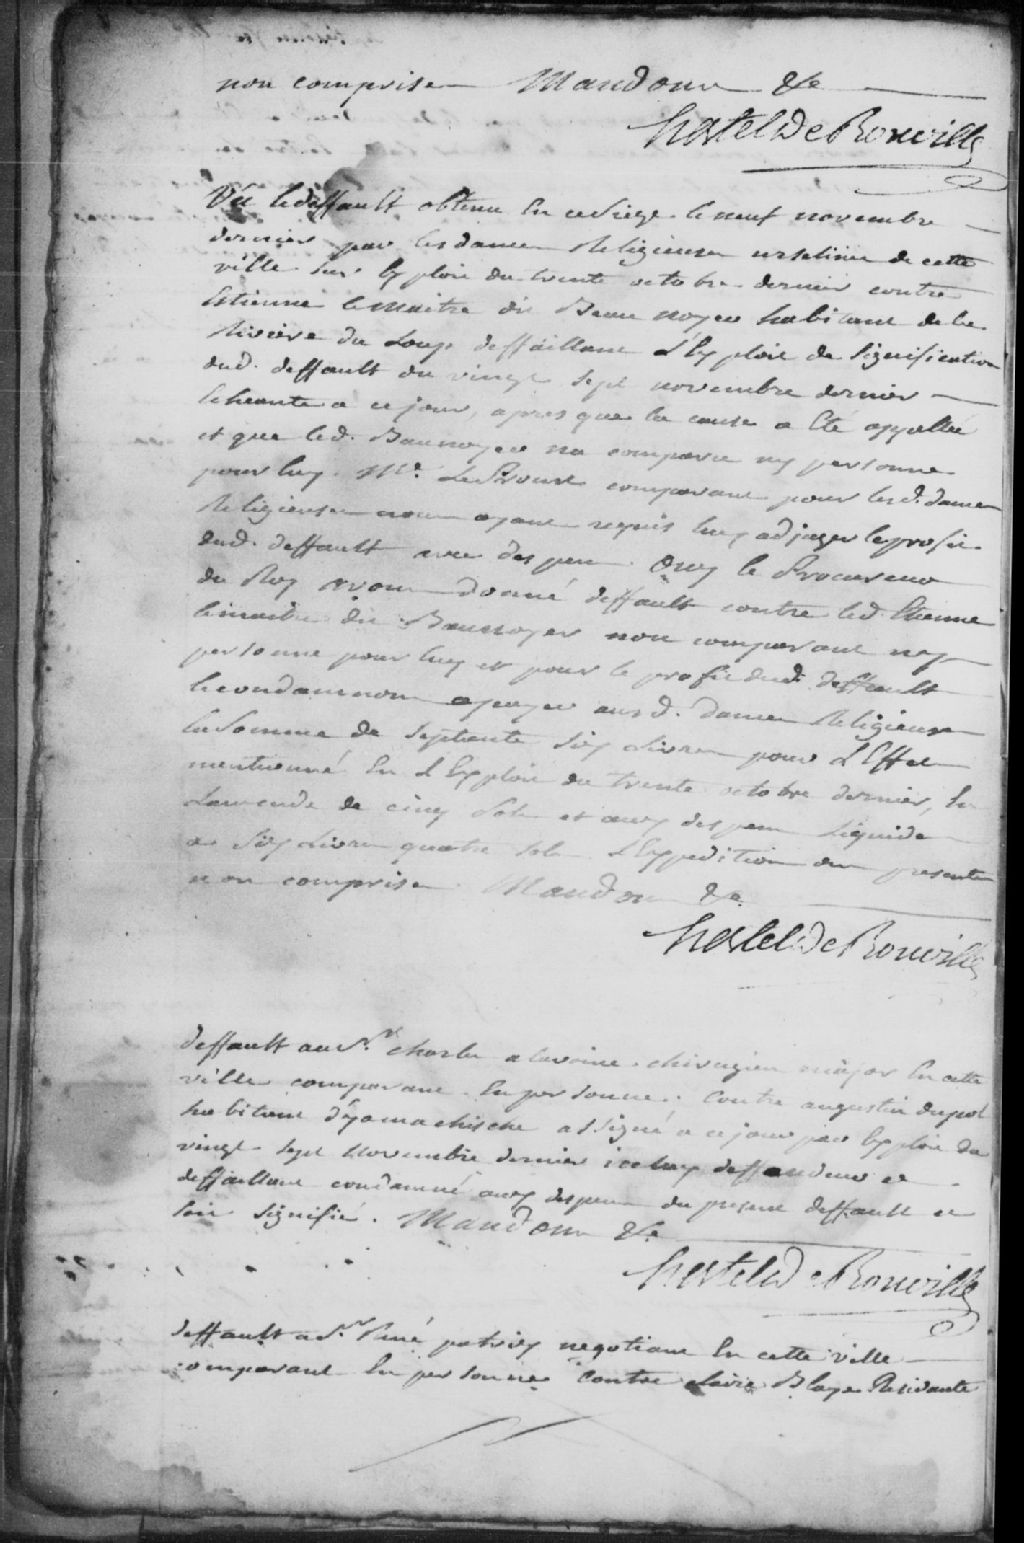 non comprise Mandons &c
hertel De Rouville
Vû le deffault obtenu En ce Siege le neuf novembre
dernier par les dames Religieuses urselines de cette
ville sur Exploit du trente octobre dernier contre
Estienne lemaitre dit Beaunoyer habitant de la
Riviere du Loup deffaillant L'Exploit de Signification
dud. deffault du vingt sept novembre dernier
Echeante a ce jour, apres que la cause a Eté appellée
et que led. Beaunoyer na comparu ny personne
pour luy. Me. Le Proust comparant pour lesd. dames
Religieuses nous ayant requis luy adjuger le profit
dud. deffault avec despens. Ouy le Procureur
du Roy avons donné deffault contre led. Etienne
lemaitre dit Beaunoyer non comparant ny
personne pour luy et pour le profit dud. deffault
le condamnons a payer ausd. dames Religieuses
la Somme de Septente Six Livres pour L'Effet
mentionné En L'Exploit du trente octobre dernier, En
Lamende de cinq Sols et aux despens Liquidés
a Six Livres quatre sols L'Expedition des presentes
non comprise Mandons &c.
hertel De Rouville
deffault au Sr. charles alavoine chirugien major En cette
ville comparant En personne. Contre augustin dupol
habitant d'yamachiche assigné a ce jour par Exploit du
vingt sept Novembre dernier iceluy deffendeur et
deffaillant condamné aux despens du present deffault et
soit signifié. Mandons &c
hertel De Rouville
deffault a Sr. René patris negotiant En cette ville
comparant En personne Contre Blaye Residante